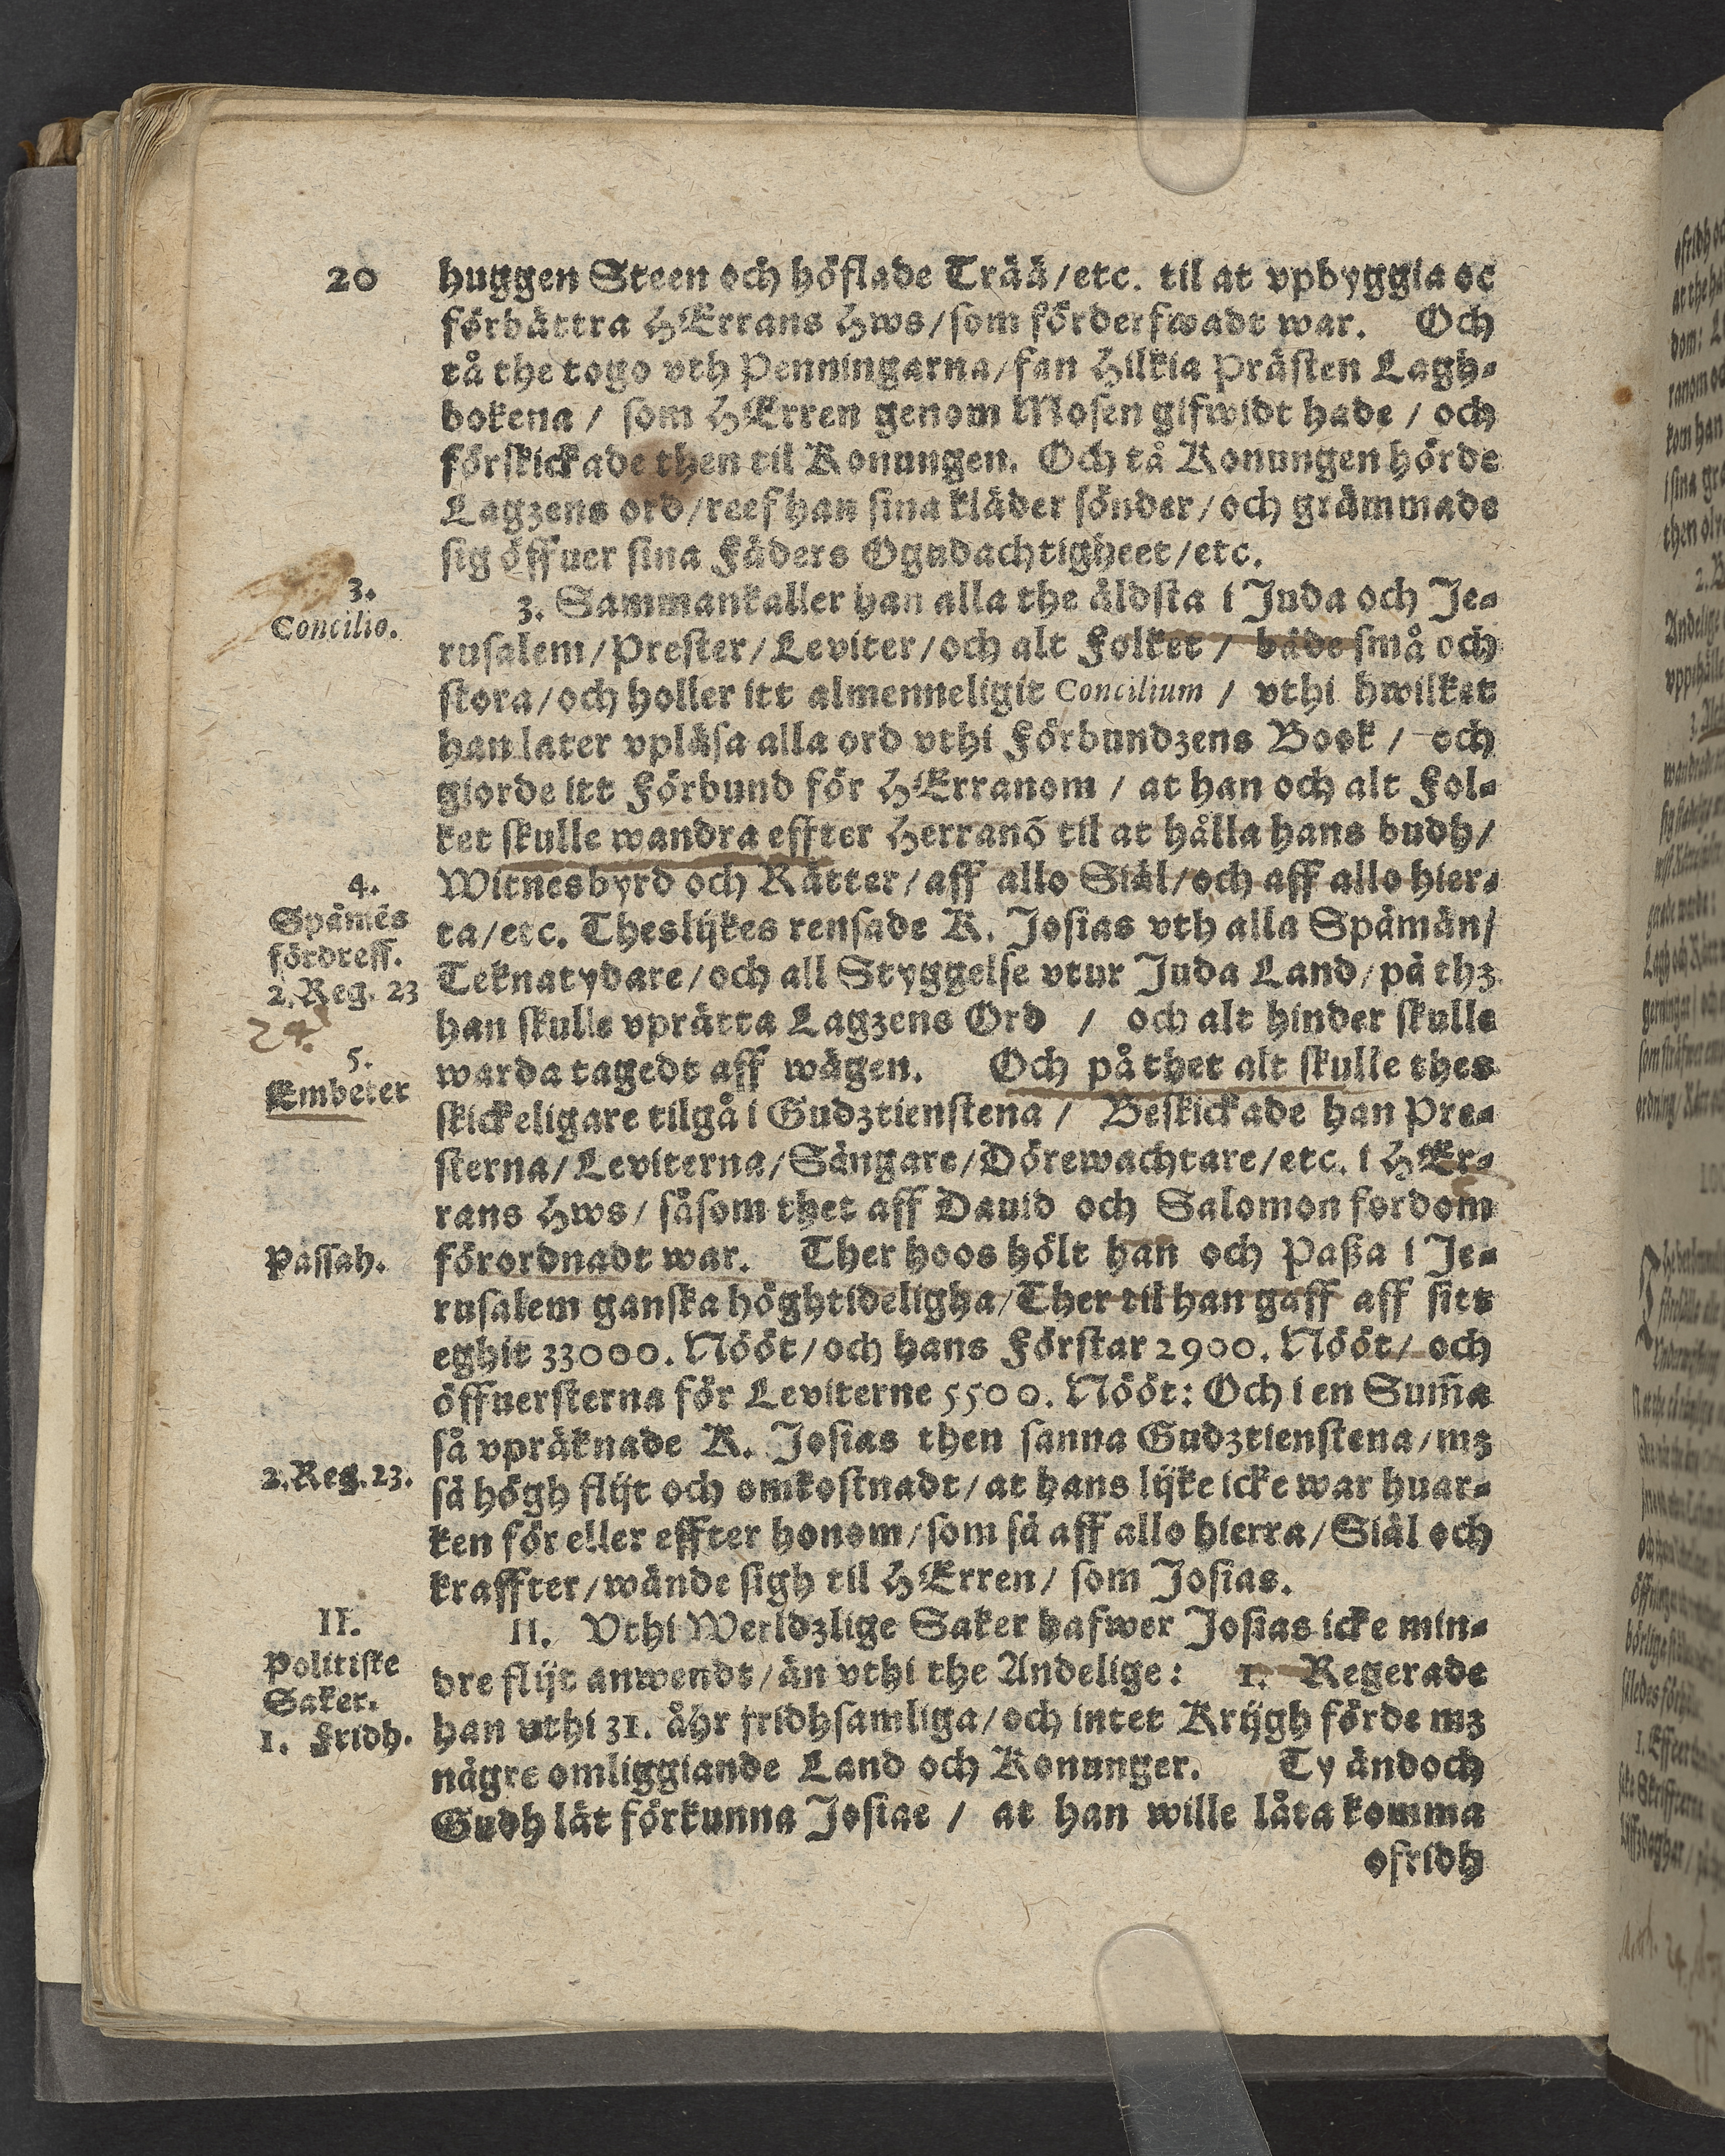 20
huggen Steen och höflade Trää/etc. til at vpbyggia oc
förbättra HErrans Hws/som förderfwadt war. Och
tå the togo vth Penningarna/fan Hilkia Prästen Lagh-
bokena / som HErren genom Mosen gifwidt hade / och
förskickade then til Konungen. Och tå Konungen hörde
Lagzens ord/reef han sina kläder sönder/och grämmade
sig öffuer sina Fäders Ogudachtigheet/etc.
3.
Concilio.
3. Sammankaller han alla the äldsta i Juda och Je-
rusalem/Prester/Leviter/och alt Folket / både små och
stora/och holler itt almenneligit Concilium / vthi hwilket
han later vpläsa alla ord vthi Förbundzens Book / och
giorde itt Förbund för HErranom / at han och alt Fol-
ket skulle wandra effter Herranõ til at hålla hans budh/
4.
Witnesbyrd och Rätter/aff allo Siäl/och aff allo hier-
Spämẽs
fördreff.
2. Reg. 23
24.
ta/etc. Theslijkes rensade K. Josias vth alla Spämän/
Teknatydare/och all Styggelse vtur Juda Land/på thz
han skulle vprätta Lagzens Ord / och alt hinder skulle
5.
Embeter
warda tagedt aff wägen. Och på thet alt skulle thes
skickeligare tilgå i Gudztienstena / Beskickade han Pre-
sterna/Leviterna/Sängare/Dörewachtare/etc. i HEr-
rans Hws/ såsom thet aff Dauid och Salomon fordom
Passah.
förordnadt war. Ther hoos hölt han och Paßa i Je-
rusalem ganska höghtideligha/Ther til han gaff aff sitt
eghit 33000. Nööt/och hans Förstar 2900. Nööt/ och
öffuersterna för Leviterne 5500. Nööt: Och i en Sum̃a
så vpräknade K. Josias then sanna Gudztienstena/mz
2. Reg. 23.
så högh flijt och omkostnadt/at hans lijke icke war huar-
ken för eller effter honom/som så aff allo hierta/Siäl och
kraffter/wände sigh til HErren/ som Josias.
II.
Politiske
Saker.
1. Fridh.
II. Vthi Werldzlige Saker hafwer Josias icke min-
dre flijt anwendt/än vthi the Andelige: 1. Regerade
han vthi 31. åhr fridhsamliga/och intet Krijgh förde mz
någre omliggiande Land och Konunger. Ty ändoch
Gudh lät förkunna Josiae / at han wille låta komma
ofridh